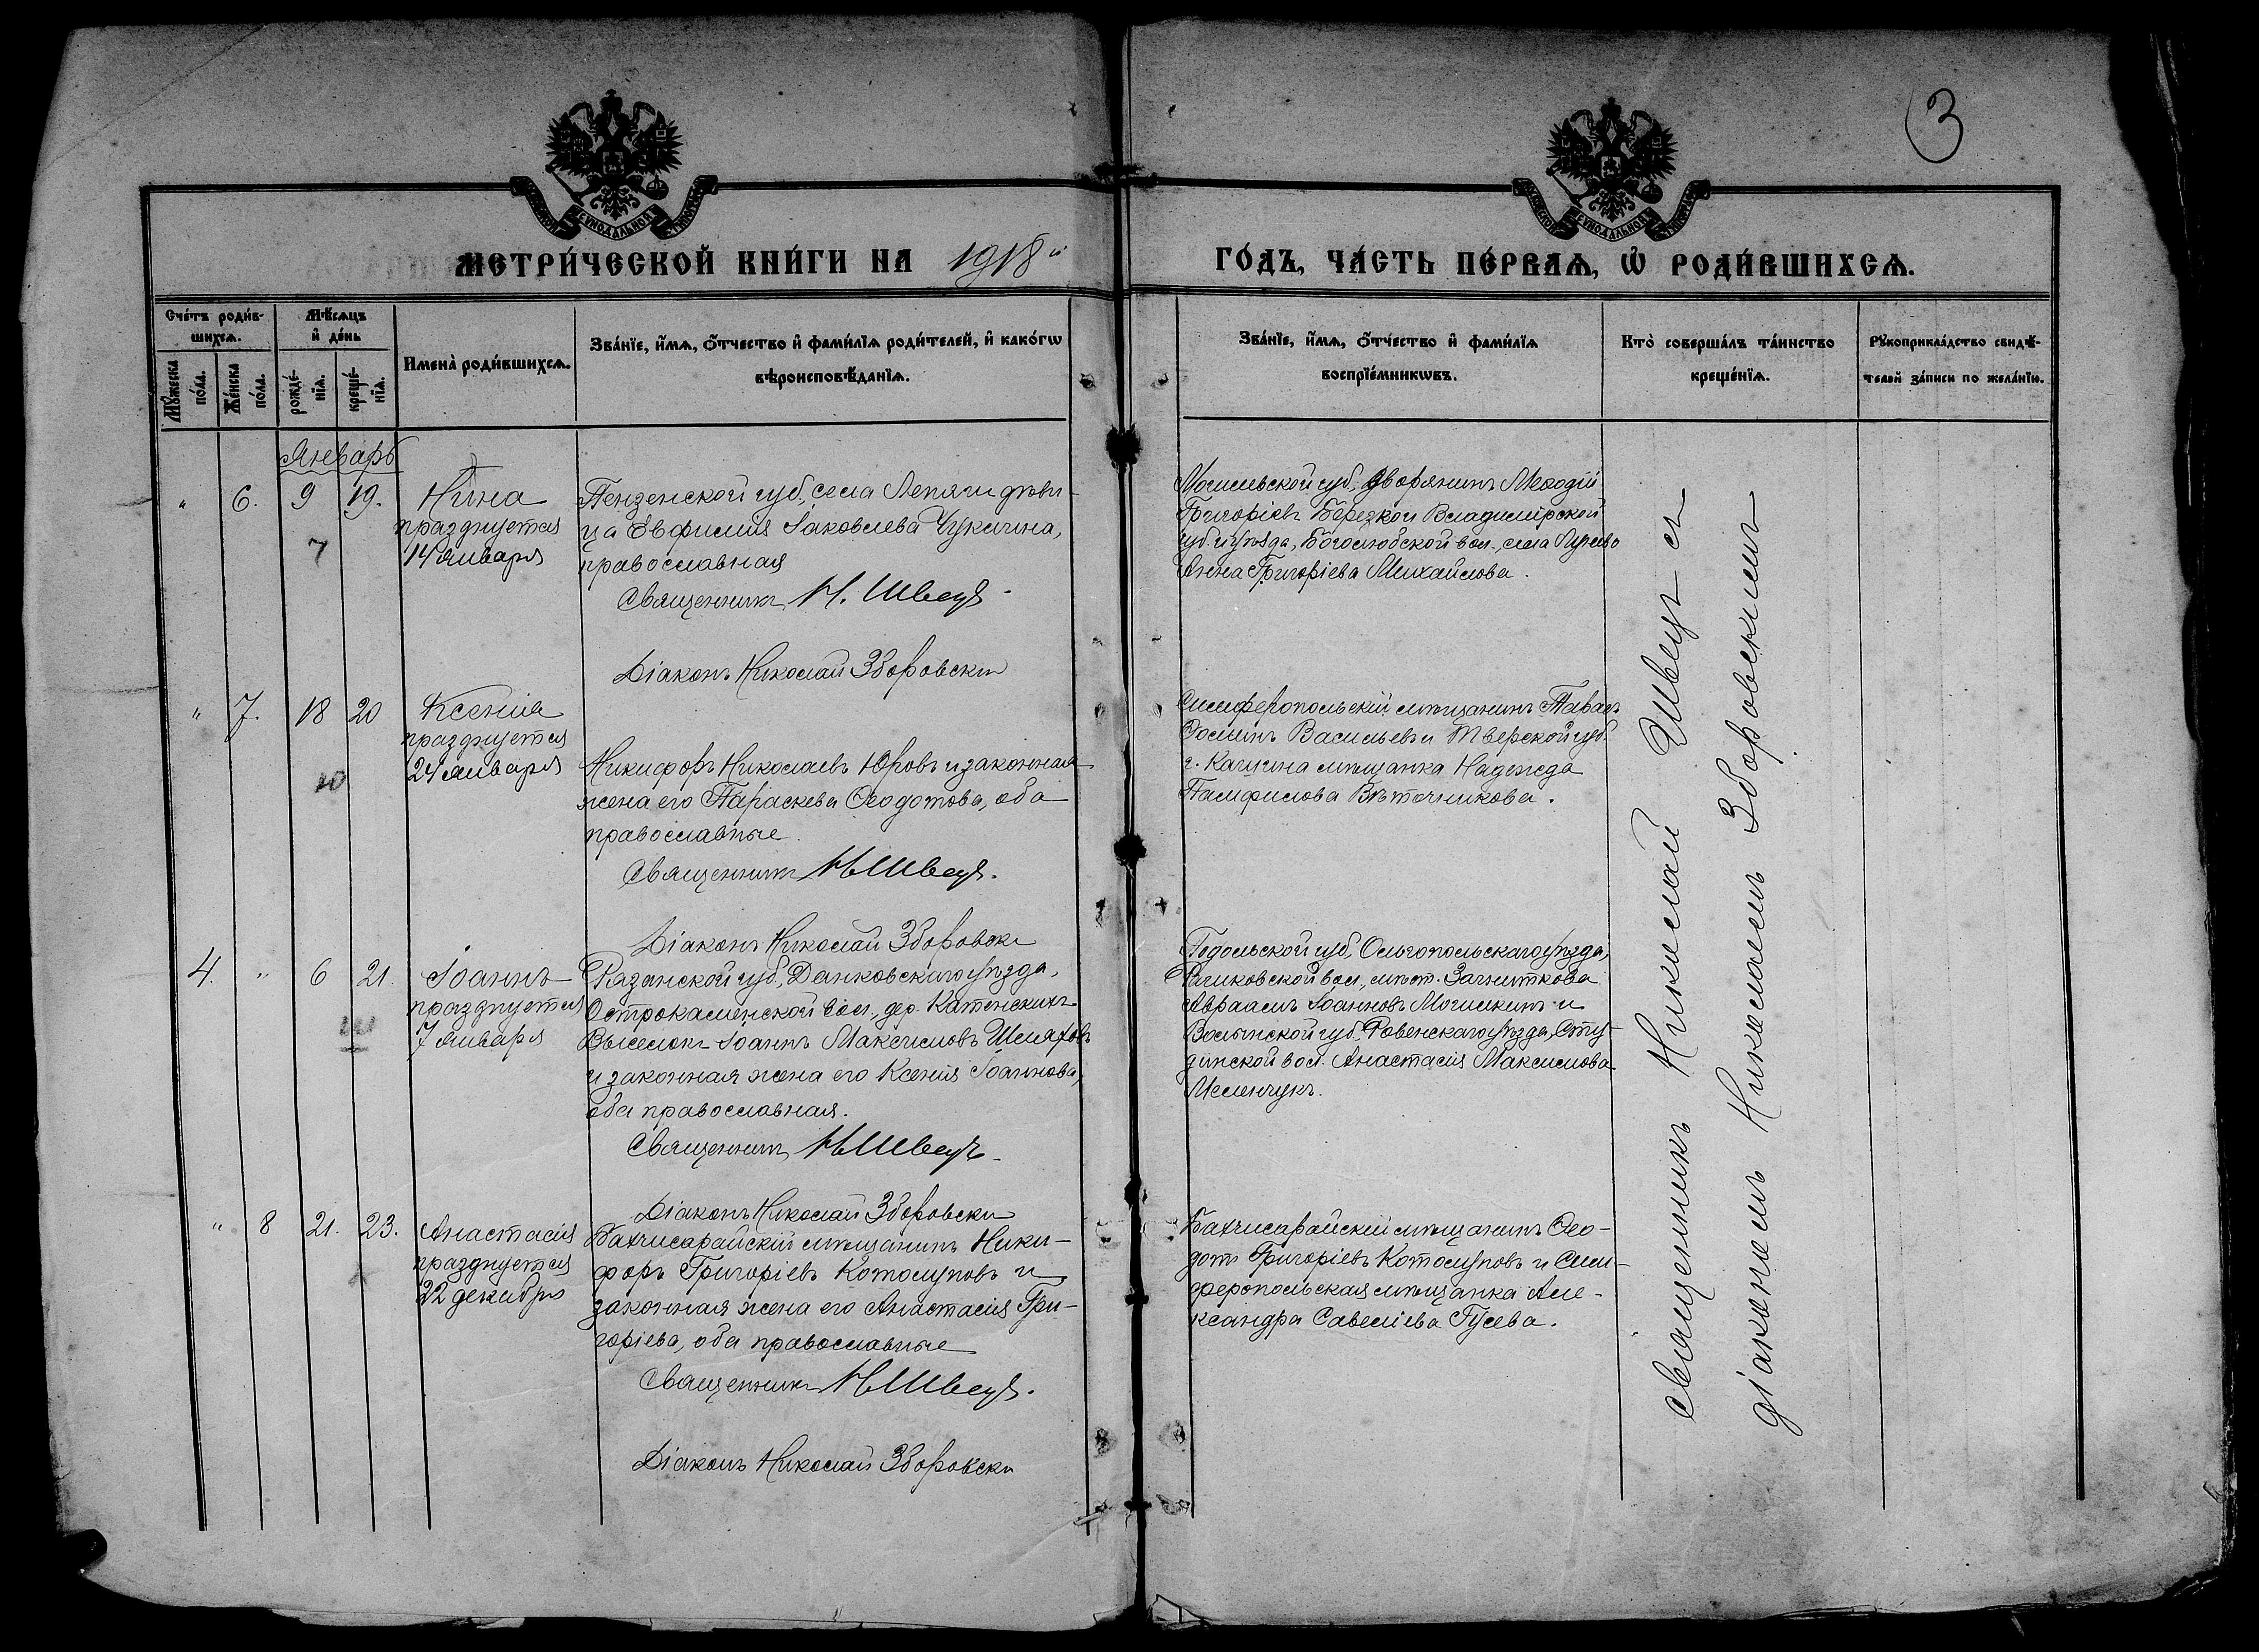 3
МЕТРИ́ЧЕСКОЙ КНИ́ГИ НА 1918й
ГО́ДЪ, ЧА́СТЬ ПЕ́РВАѦ, Ѡ РОДИ́ВШИХСѦ.
Сче́тъ роди́в-
шихсѧ.
Мꙋ́жеска по́ла.
Же́нска по́ла.
Мѣ́сѧцъ
и҆ де́нь
рожде́-
нїѧ.
креще́-
нїѧ.
Имена̀ роди́вшихсѧ.
Зва́нїе, и҆́мѧ, ѻ҆́тчество и҆ фами́лїѧ роди́телей, и҆ како́гѡ
вѣроисповѣ́данїѧ.
Зва́нїе, и҆́мѧ, ѻ҆́тчество и҆ фами́лїѧ
воспрїе́мникѡвъ.
Кто̀ соверша́лъ та́инство
креще́нїѧ.
Рꙋкоприкла́дство свидѣ́-
телей за́писи по жела́нїю.
Январь
" 6. 9 19.
7
Нина
празднуется
14 января
Пензенской губ., села Лепяги дѣви-
ца Евфимія Іаковлева Чукаина,
православная
Священникъ Н. Швецъ
Діаконъ Николай Зборовски
Могилевской губ. дворянинъ Меѳодій
Григоріевъ Березкои Владимірской
губ. и уѣзда, Боголюбской вол., села
Анна Григоріева Михайлова.
" 7. 18 20
10
Ксенія
празднуется
24 января
Никифоръ Николаевъ Юровъ и законная
жена его Параскева Ѳеодотова, оба
православные.
Священникъ Н. Швецъ.
Діаконъ Николай Зборовски
Симферопольскій мѣщанинъ Павелъ
Васильевъ и Тверской губ.
г. Кашина мѣщанка Надежда
Памфилова Вѣточникова.
4. " 6 21.
Іоаннъ
празднуется
7 января
Рязанской губ., Данковскаго уѣзда,
Острокаменской вол., дер. Катенскихъ
Выселокъ Іоаннъ Максимовъ Шеляховъ
и законная жена его Ксенія Іоаннова,
оба православная.
Священникъ Н. Швецъ
Діаконъ Николай Зборовски
Подольской губ., Ольгопольскаго уѣзда,
вол., мѣст. Загниткова
Авраамъ Іоанновъ Могилкинъ и
Волынской губ. Ровенскаго уѣзда, Сту-
динской вол. Анастасія Максимова
Меленчукъ.
" 8 21. 23.
Анастасія
празднуется
22 декабря
Бахчисарайскій мѣщанинъ Ники-
форъ Григоріевъ Котолуповъ и
законная жена его Анастасія Гри-
горіева, оба православные
Священникъ Н. Швецъ.
Діаконъ Николай Зборовски
Бахчисарайскій мѣщанинъ Ѳео-
дотъ Григоріевъ Котолуповъ и Сим-
феропольская мѣщанка Але-
ксандра Савеліева Гусева.
Священникъ Николай Швецъ съ
діакономъ Николаемъ Зборовскимъ